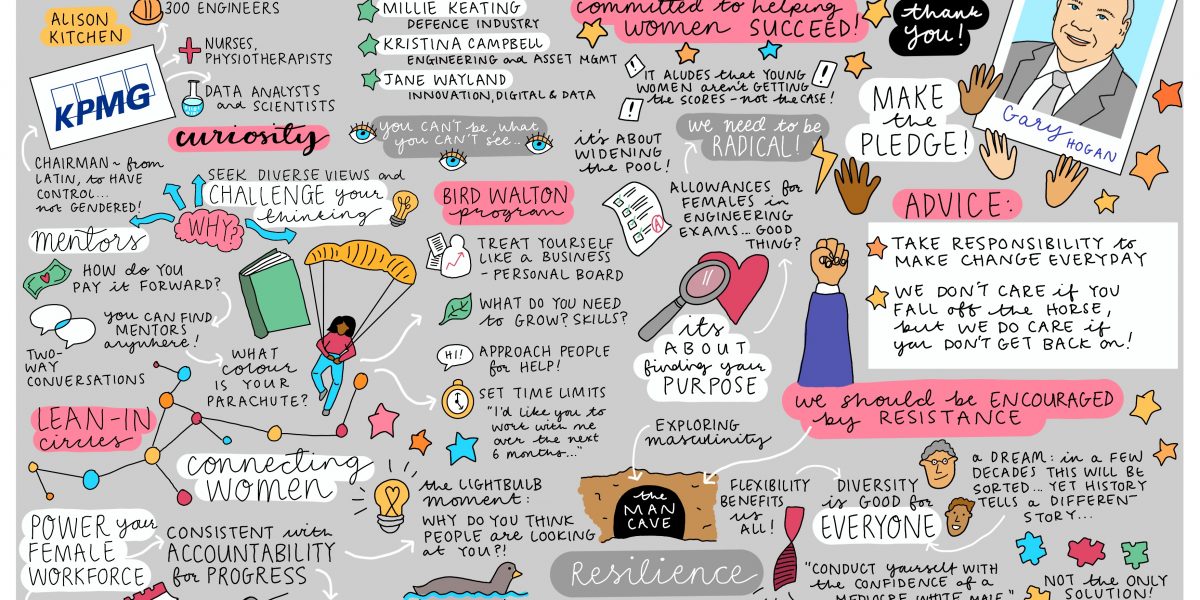 ALISON
KITCHEN
300 ENGINEERS
KPMG
NURSES,
PHYSIOTHERAPISTS
DATA ANALYSTS
and SCIENTISTS
curiosity
CHAIRMAN ~ from
LATIN, to HAVE
CONTROL...
not GENDERED!
MILLIE KEATING
DEFENCE INDUSTRY
KRISTINA CAMPBELL
ENGINEERING and ASSET MGMT
JANE WAYLAND
INNOVATION, DIGITAL & DATA
you CAN'T be, what
you CAN'T see...
SEEK DIVERSE VIEWS and
CHALLENGE your
thinking
WHY?
mentors
HOW do YOU
PAY it FORWARD?
you CAN FIND
MENTORS
anywhere!
TWO-
WAY
CONVERSATIONS
WHAT
COLOUR
IS YOUR
PARACHUTE?
LEAN-IN
circles
connecting
WOMEN
POWER your
FEMALE
WORKFORCE
CONSISTENT with
ACCOUNTABILITY
for PROGRESS
BIRD WALTON
program
TREAT YOURSELF
LIKE a BUSINESS
- PERSONAL BOARD
WHAT DO YOU NEED
to GROW? SKILLS?
HI!
APPROACH PEOPLE
for HELP!
SET TIME LIMITS
"I'd LIKE you to
WORK with ME
over the next
6 months..."
the LIGHTBULB
MOMENT:
WHY DO YOU THINK
PEOPLE are LOOKING
at YOU?!
committed to helping
women SUCCEED!
! IT ALUDES that YOUNG !
WOMEN aren't GETTING
! the SCORES - not the CASE!
it's ABOUT
WIDENING
the POOL!
we need to be
RADICAL!
A
ALLOWANCES for
FEMALES in
ENGINEERING
EXAMS... GOOD
THING?
its
ABOUT
finding your
PURPOSE
EXPLORING
masculinity
the
MAN
CAVE
FLEXIBILITY
BENEFITS
us
ALL!
Resilience
thank
you!
MAKE
the
PLEDGE!
Gary
HOGAN
ADVICE:
TAKE RESPONSIBILITY to
MAKE CHANGE EVERYDAY
WE DON'T CARE if YOU
FALL off the HORSE,
but WE DO CARE if
you DON'T GET BACK on!
we should be ENCOURAGED
by RESISTANCE
DIVERSITY
is GOOD for
EVERYONE
a DREAM: in a FEW
DECADES THIS WILL BE
SORTED... YET HISTORY
TELLS a DIFFERENT
STORY...
"CONDUCT yourself WITH
the CONFIDENCE of a
MEDIOCRE WHITE MALE"
NOT the ONLY
SOLUTION!